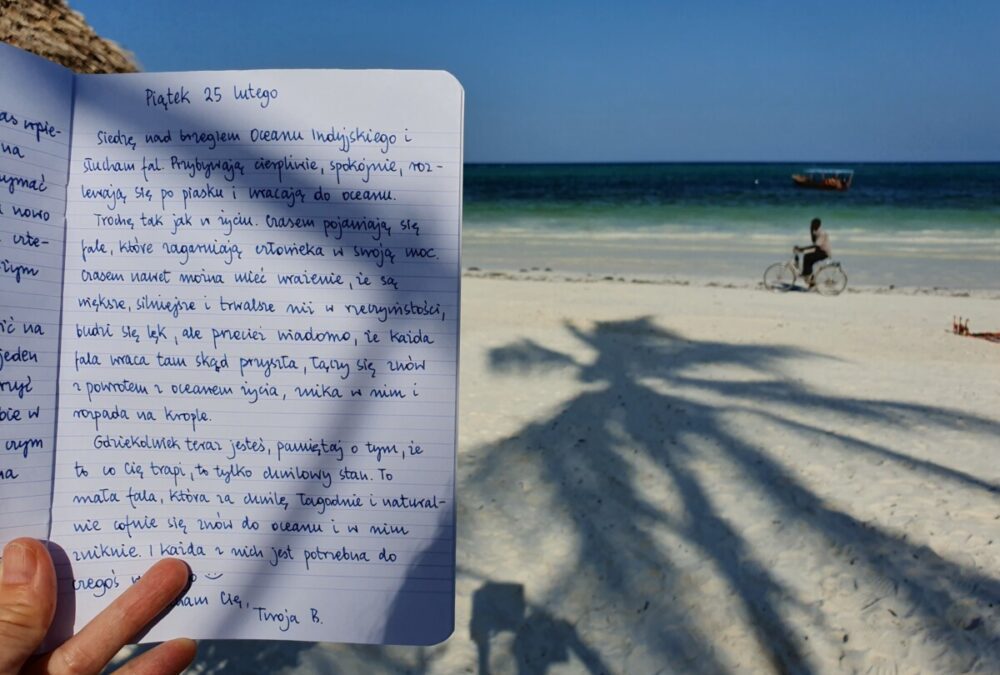 na
nowo
jeden
na
Piątek 25 lutego
Siedzę nad brzegiem Oceanu Indyjskiego i
słucham fal. Przybywają cierpliwie, spokojnie, roz-
lewają się po piasku i wracają do oceanu.
Trochę tak jak w życiu. Czasem pojawiają się
fale, które zagarniają człowieka w swoją moc.
Czasem nawet można mieć wrażenie, że są
większe, silniejsze i trwalsze niż w rzeczywistości,
budzi się lęk, ale przecież wiadomo, że każda
fala wraca tam skąd przyszła, łączy się znów
z powrotem z oceanem życia, znika w nim i
rozpada na krople.
Gdziekolwiek teraz jesteś, pamiętaj o tym, że
to co Cię trapi, to tylko chwilowy stan. To
mała fala, która za chwilę łagodnie i natural-
nie cofnie się znów do oceanu i w nim
zniknie. I każda z nich jest potrzebna do
czegoś
Cię,
Twoja B.